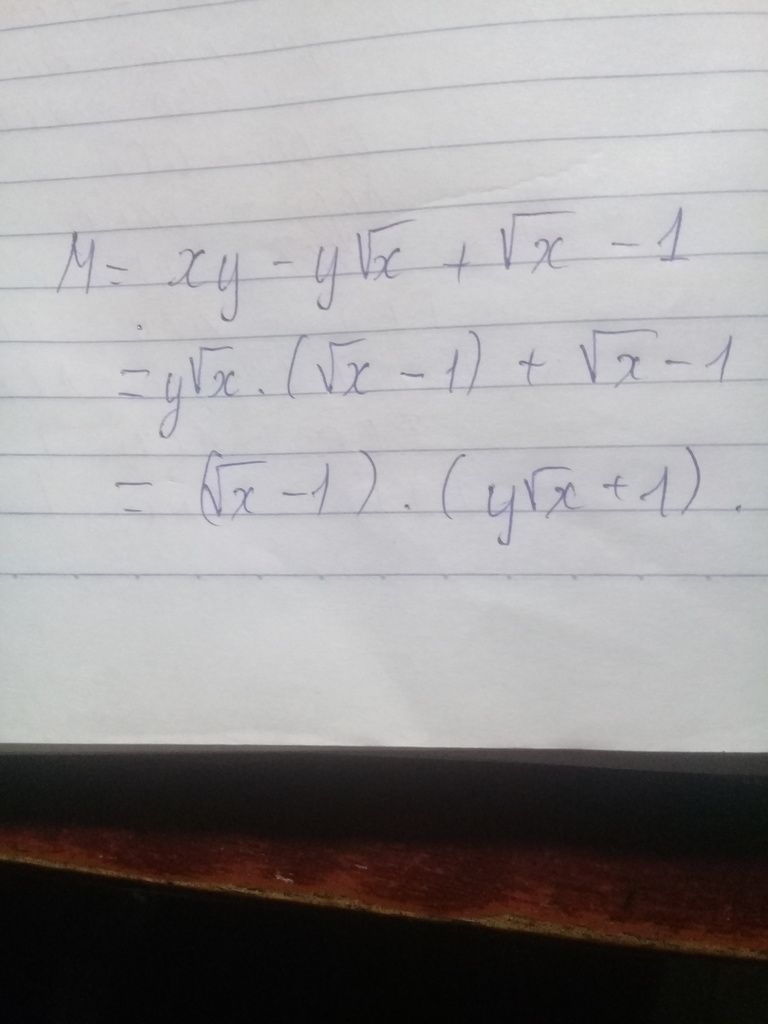 M = xy - y√x + √x - 1
= y√x . (√x - 1) + √x - 1
= (√x - 1) . (y√x + 1) .